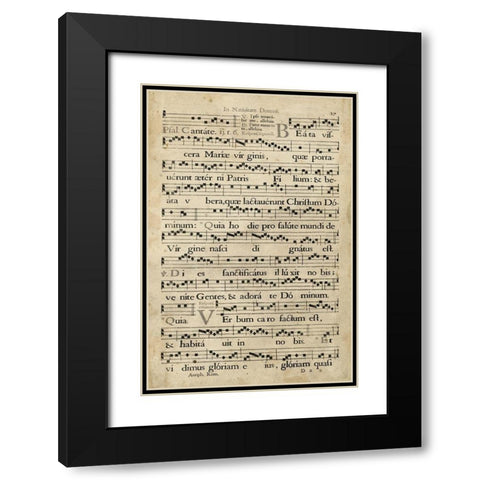 In Nativitate Domini.
37
Psal. Cantáte. f. 16. BEáta vis-
cera Maríæ vir ginis, quæ porta-
vérunt ætér ni Patris Fi lium: & be-
áta v bera, quæ lactavérunt Christum Dó-
minum: Quia ho die pro salúte mundi de
Vir gine nasci di gnátus est.
℣. Di es sanctificátus il lú xit no bis:
ve nite Gentes, & adorá te Dó minum.
Quia. VEr bum ca ro factum est,
& habitá uit in no bis. &
vi dimus glóriam e ius, glóriam quasi
Antiph. Rom.